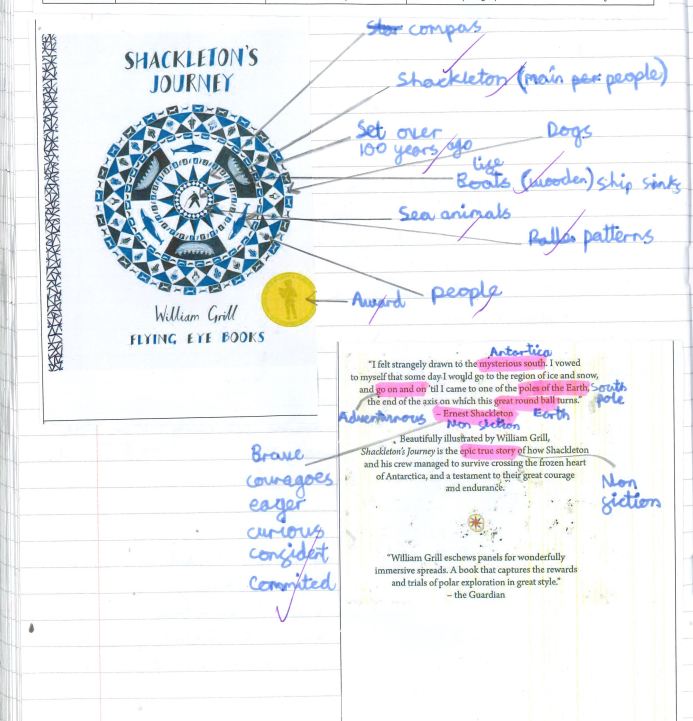 Star compas
SHACKLETON'S
JOURNEY
Shackleton (main per people)
Set over
100 years ago
Dogs
life
Boats (wooden) ship sinks
Sea animals
patterns
Award
people
William Grill
FLYING EYE BOOKS
Antartica
"I felt strangely drawn to the mysterious south. I vowed
to myself that some day I would go to the region of ice and snow,
and go on and on 'til I came to one of the poles of the Earth,
South
pole
the end of the axis on which this great round ball turns."
Adventourous
– Ernest Shackleton
Earth
Non fiction
Beautifully illustrated by William Grill,
Shackleton's Journey is the epic true story of how Shackleton
and his crew managed to survive crossing the frozen heart
of Antarctica, and a testament to their great courage
and endurance.
Non
fiction
Brave
couragoes
eager
curious
confident
Commited
"William Grill eschews panels for wonderfully
immersive spreads. A book that captures the rewards
and trials of polar exploration in great style."
– the Guardian